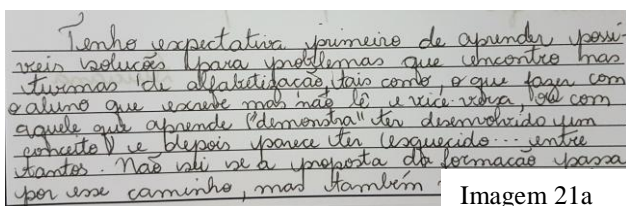 Tenho expectativa primeiro de aprender possí-
veis soluções para problemas que encontro nas
turmas de alfabetização, tais como, o que fazer com
o aluno que escreve mas não lê e vice-versa, ou com
aquele que aprende ("demonstra" ter desenvolvido um
conceito) e depois parece ter esquecido... entre
tantos. Não sei se a proposta da formação passa
por esse caminho, mas também
Imagem 21a